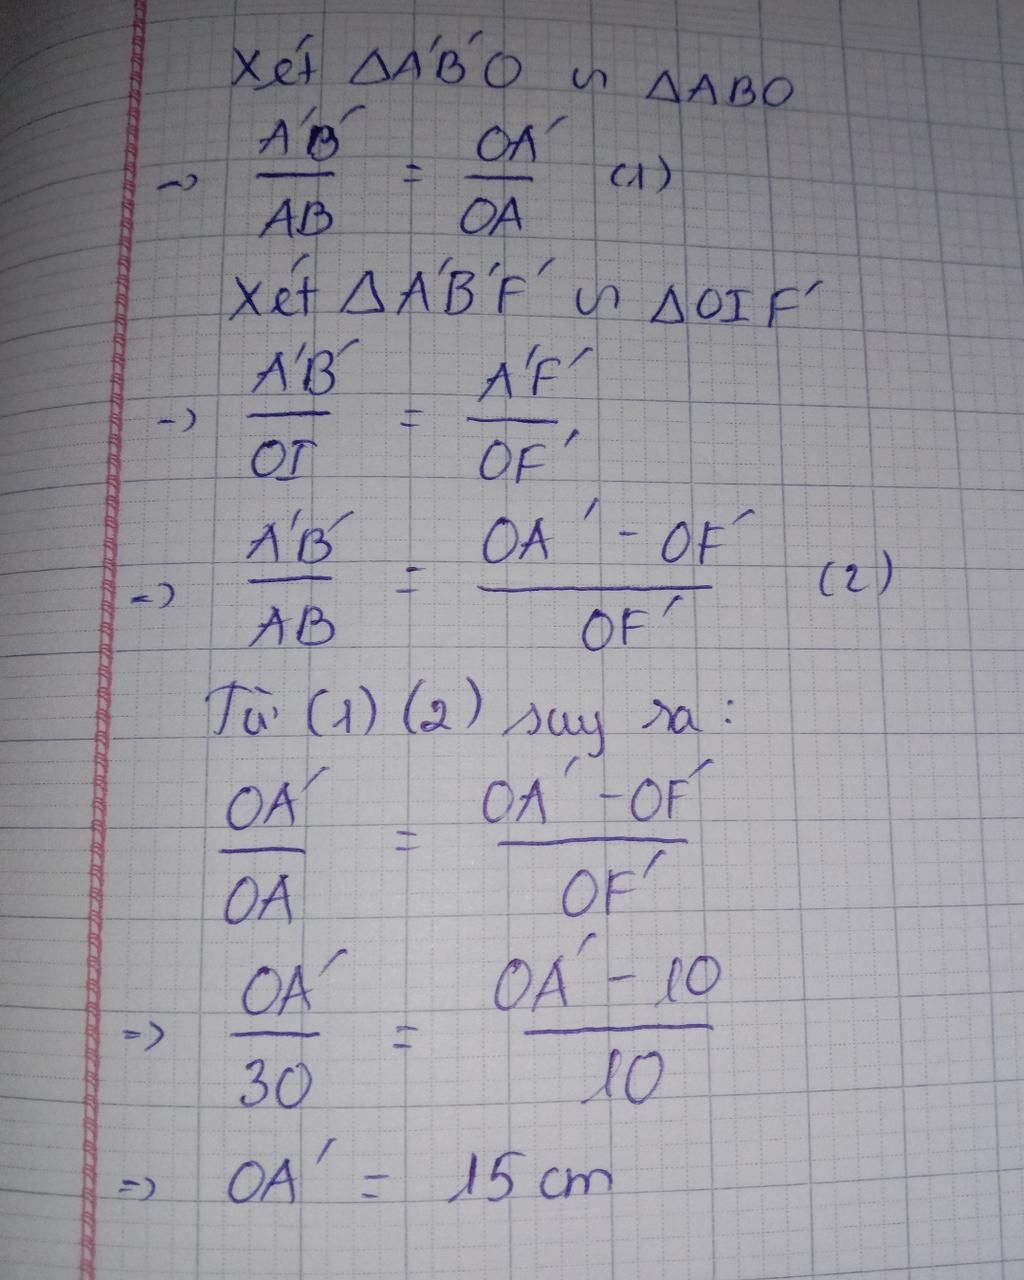 Xét ΔA'B'O ᔕ ΔABO
=> A'B'/AB = OA'/OA (1)
Xét ΔA'B'F' ᔕ ΔOIF'
=> A'B'/OI = A'F'/OF'
=> A'B'/AB = OA' - OF'/OF' (2)
Từ (1) (2) suy ra :
OA'/OA = OA' - OF'/OF'
=> OA'/30 = OA' - 10/10
=> OA' = 15 cm